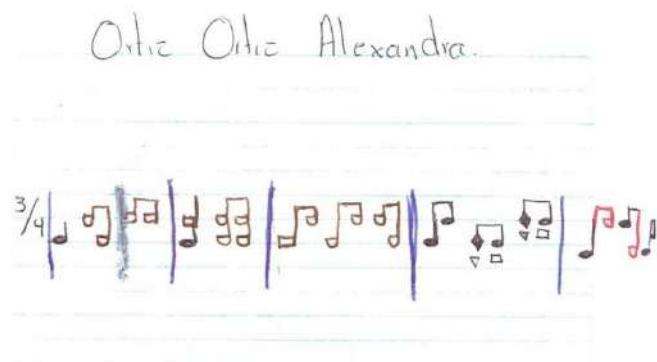 Ortiz Ortiz Alexandra.
3/4